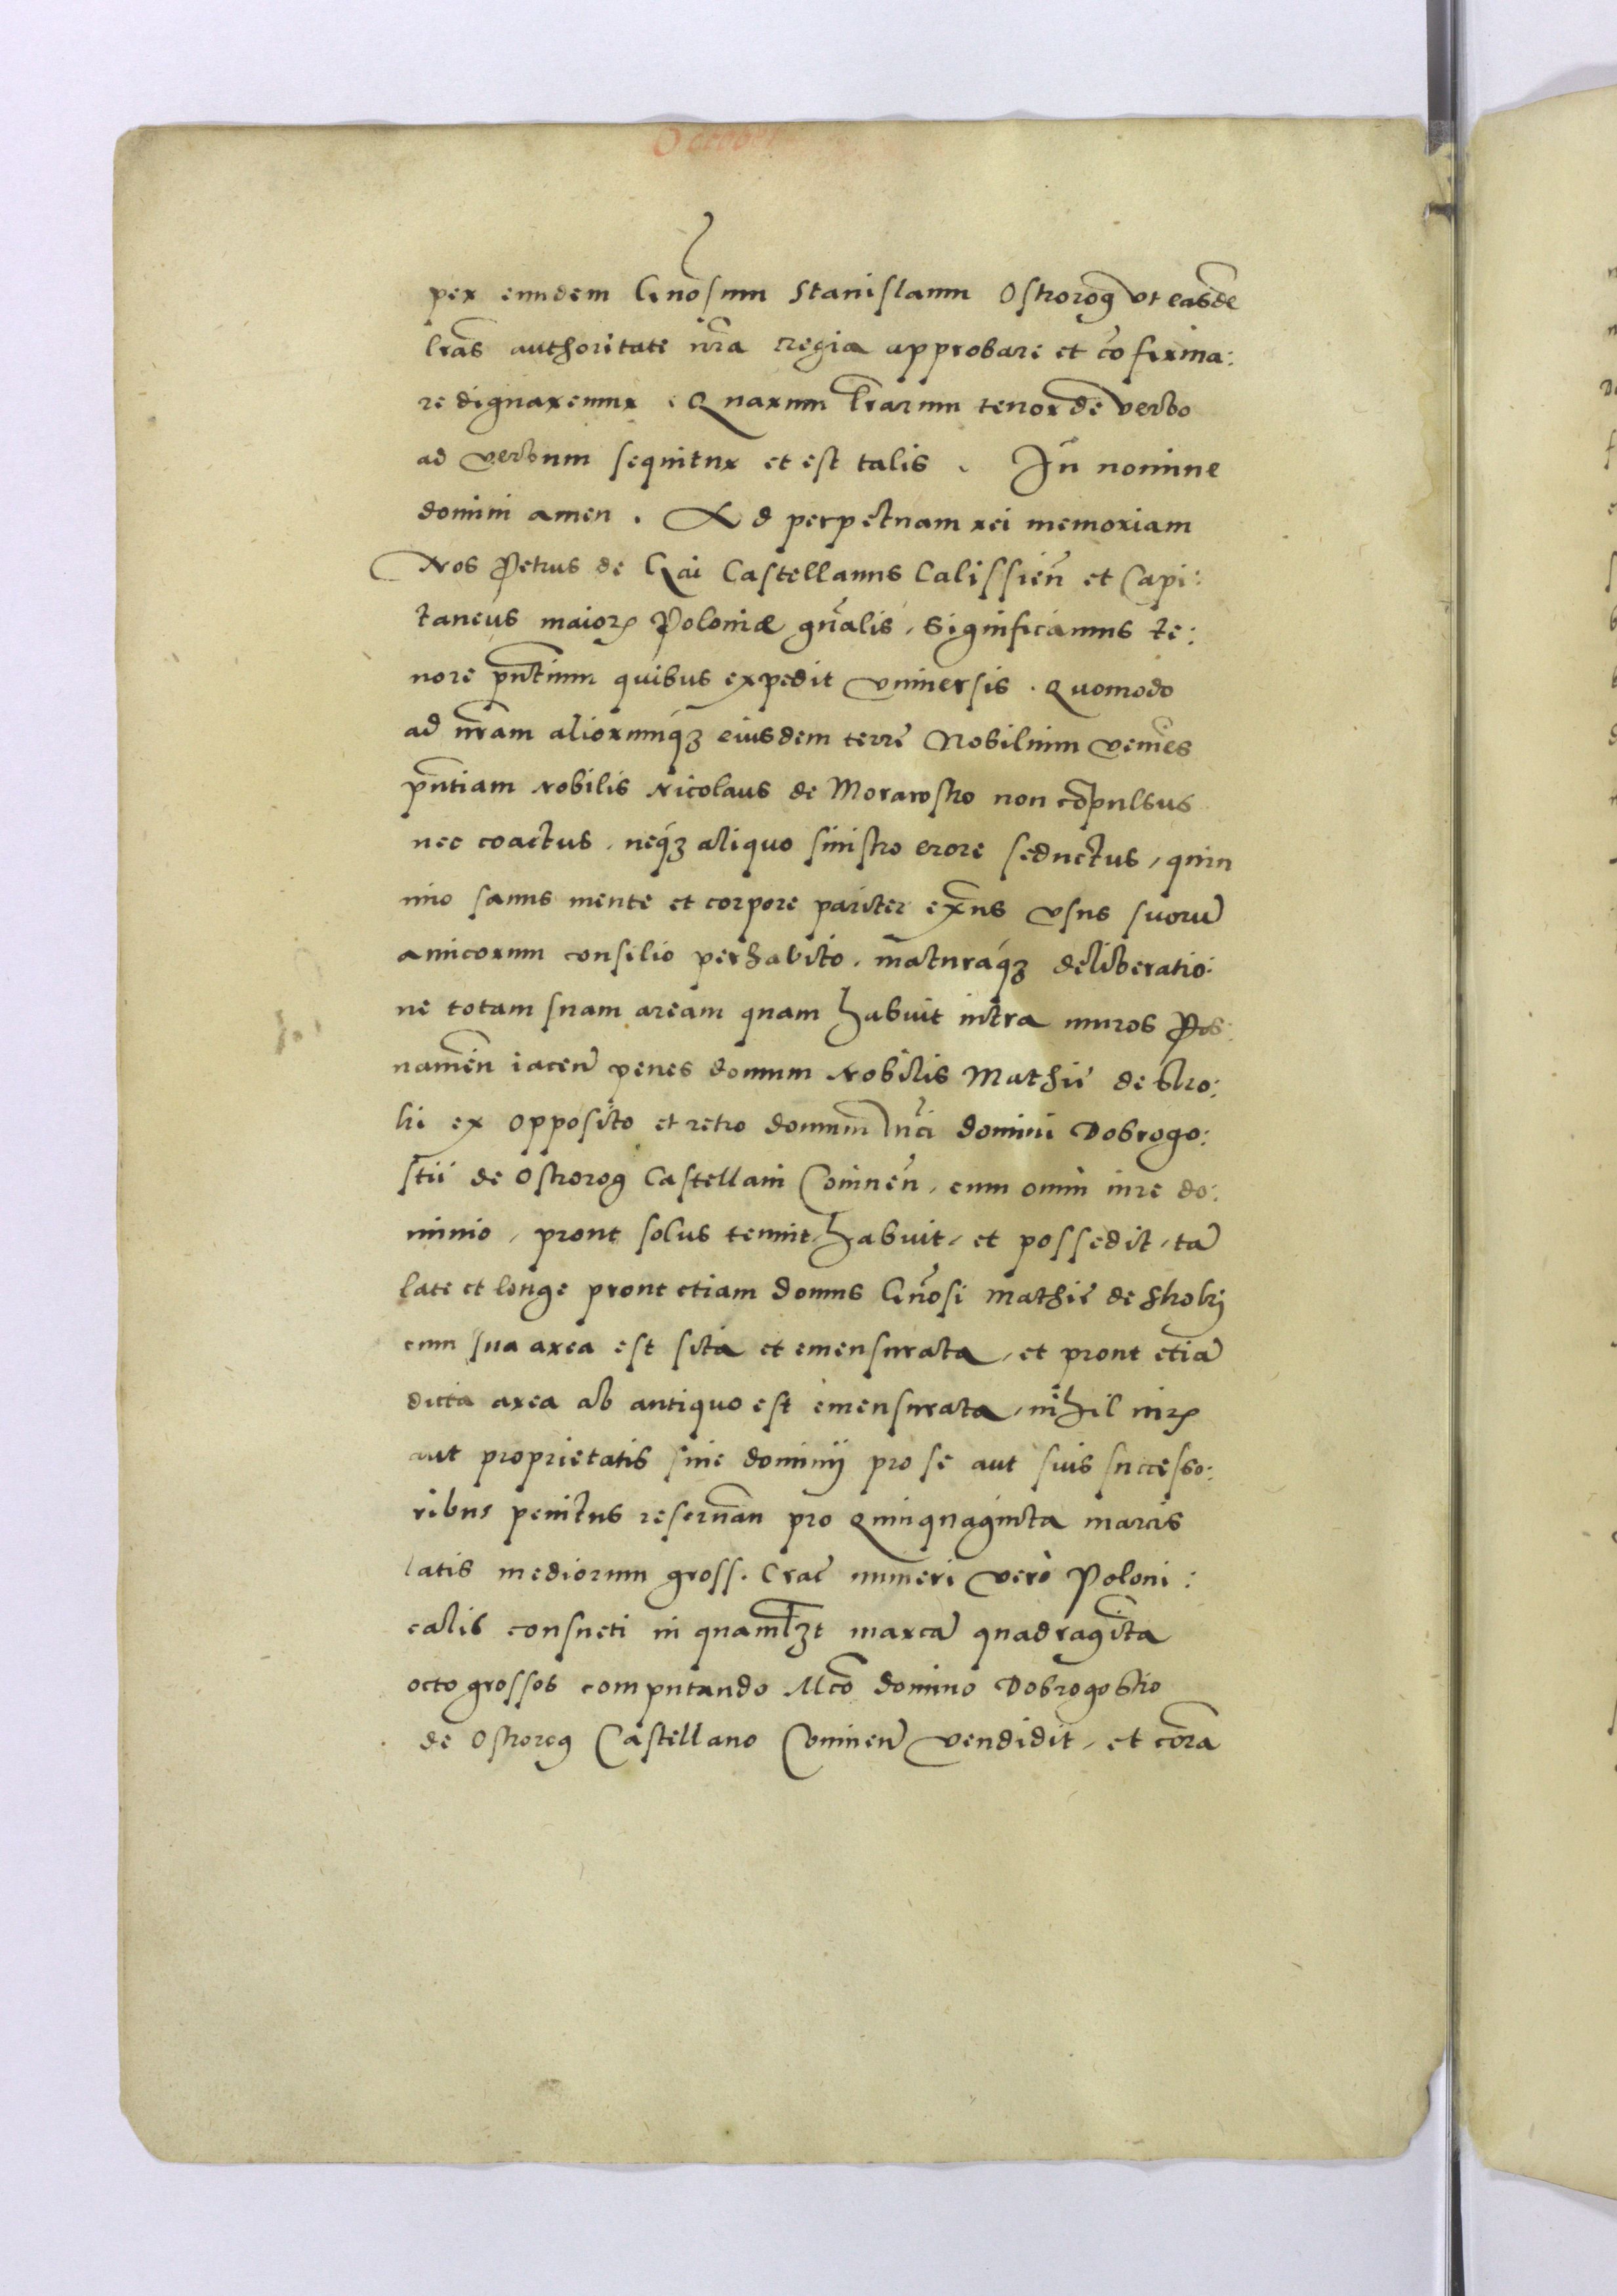 October
per eundem Gnōsum Stanislaum Ostrorog ut easdē
lr̄as authoritate nr̄a regia approbare et cōfirma:
re dignaremur. Quarum lr̄arum tenor de verbo
ad verbum sequitur et est talis. In nomine
domini amen. Ad perpetuam rei memoriam
Nos Petrus de Gai Castellanus Calissien̄ et Capi:
taneus maioꝝ Poloniæ gn̄alis, Significamus te:
nore pn̄tium quibus expedit universis. Quomodo
ad nr̄am aliorumq́ꝫ eiusdem terre Nobilium veniēs
pn̄tiam Nobilis Nicolaus de Morawsko non cōpulsus
nec coactus, neq́ꝫ aliquo sinistro erore seductus, quin
imo sanus mente et corpore pariter exn̄s usus suorū
amicorum consilio perhabito, maturaq́ꝫ deliberatio:
ne totam suam aream quam habuit intra muros Pos:
namēn iacen̄ penes domum Nobilis Mathie de Sko:
ki ex opposito et retro domum mc̄i domini Dobrogo:
stii de Ostrorog Castellani Coninen̄, cum omni iure do:
minio, prout solus tenuit, habuit, et possedit, tā
late et longe prout etiam domus Gnōsi Mathie de Skokj
cum sua area est sita et emensurata, et prout etiā
dicta area ab antiquo est emensurata, nihil iurꝫ
aut proprietatis sive dominij pro se aut suis successo:
ribus penitus reservan̄ pro Quinquaginta marcis
latis mediorum gross. Crac̄ numeri vero Poloni:
calis consueti in quamlꝫt marcā quadraginta
octo grossos computando Mc̄o domino Dobrogostio
de Ostrorog Castellano Coninen̄ vendidit, et corā